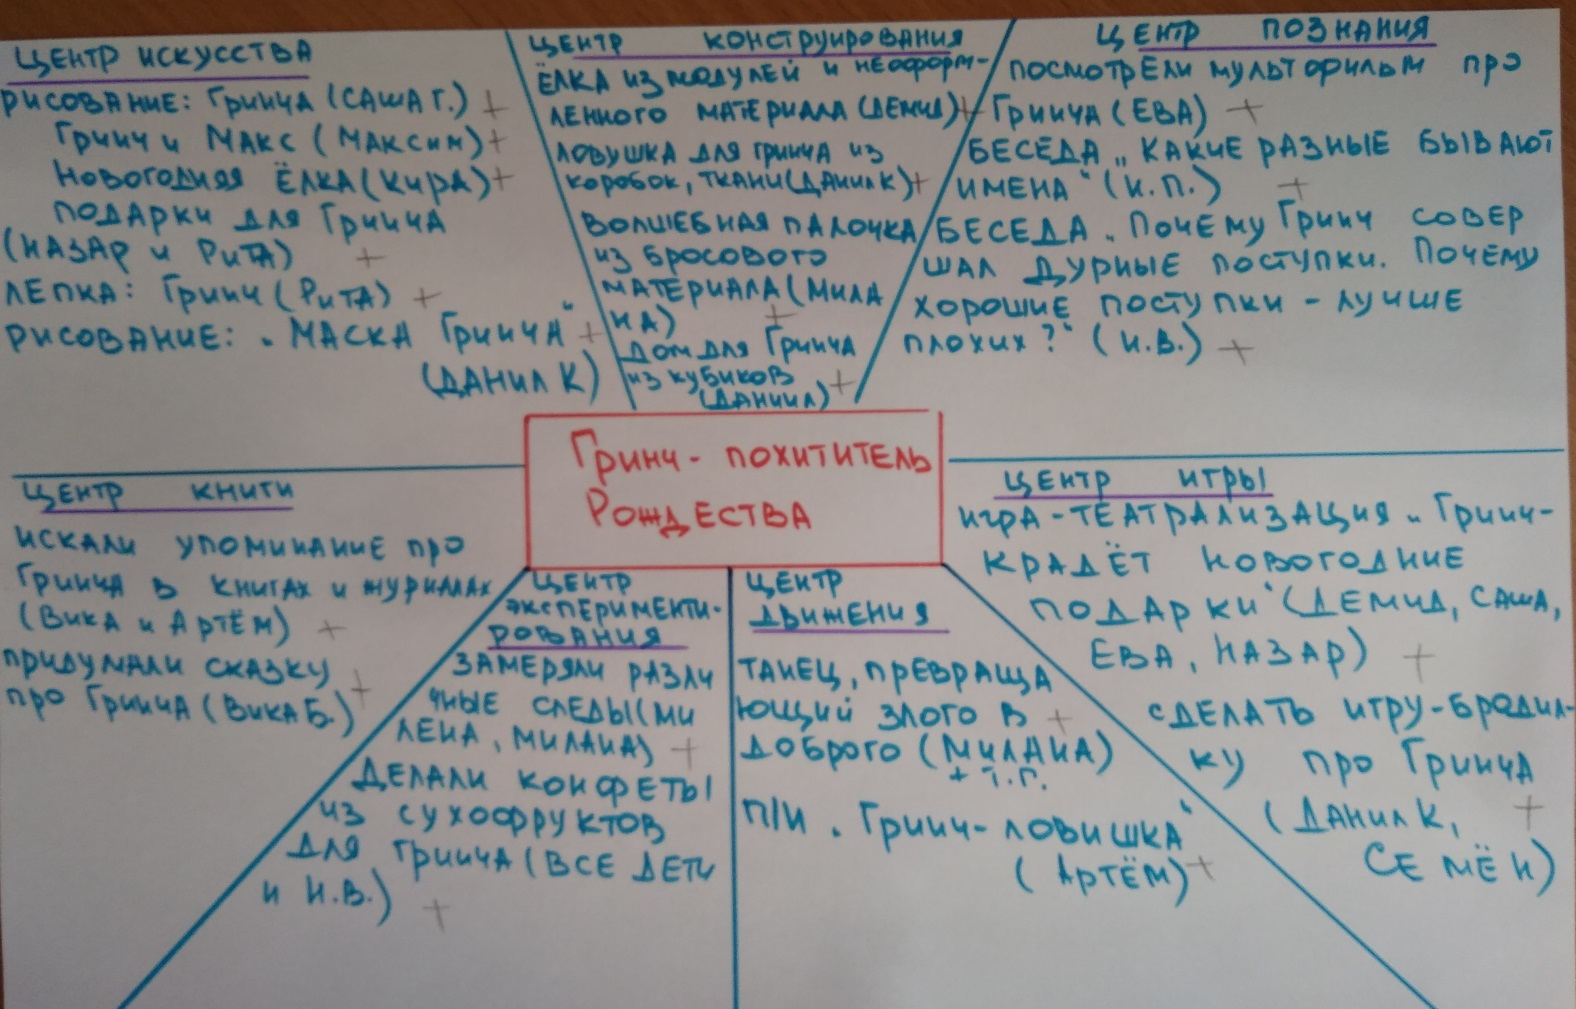 ЦЕНТР ИСКУССТВА
РИСОВАНИЕ: ГРИНЧА (САША Г.) +
ГРИНЧ И МАКС (МАКСИМ) +
НОВОГОДНЯЯ ЁЛКА (КИРА) +
ПОДАРКИ ДЛЯ ГРИНЧА
(НАЗАР И РИТА) +
ЛЕПКА: ГРИНЧ (РИТА) +
РИСОВАНИЕ: „МАСКА ГРИНЧА" +
(ДАНИЛ К)
ЦЕНТР КОНСТРУИРОВАНИЯ
ЁЛКА ИЗ МОДУЛЕЙ И НЕОФОРМ-
ЛЕННОГО МАТЕРИАЛА (ДЕМИД) +
ЛОВУШКА ДЛЯ ГРИНЧА ИЗ
КОРОБОК, ТКАНИ (ДАНИЛ К) +
ВОЛШЕБНАЯ ПАЛОЧКА
ИЗ БРОСОВОГО
МАТЕРИАЛА (МИЛА
НА) +
ДОМ ДЛЯ ГРИНЧА
ИЗ КУБИКОВ +
(ДАНИИЛ)
ЦЕНТР ПОЗНАНИЯ
ПОСМОТРЕЛИ МУЛЬТФИЛЬМ ПРО
ГРИНЧА (ЕВА) +
БЕСЕДА „КАКИЕ РАЗНЫЕ БЫВАЮТ
ИМЕНА" (И.П.) +
БЕСЕДА „ПОЧЕМУ ГРИНЧ СОВЕР
ШАЛ ДУРНЫЕ ПОСТУПКИ. ПОЧЕМУ
ХОРОШИЕ ПОСТУПКИ - ЛУЧШЕ
ПЛОХИХ?" (И.В.) +
ГРИНЧ - ПОХИТИТЕЛЬ
РОЖДЕСТВА
ЦЕНТР КНИГИ
ИСКАЛИ УПОМИНАНИЕ ПРО
ГРИНЧА В КНИГАХ И ЖУРНАЛАХ
(ВИКА И АРТЁМ) +
ПРИДУМАЛИ СКАЗКУ
ПРО ГРИНЧА (ВИКА Б.) +
ЦЕНТР
ЭКСПЕРИМЕНТИ-
РОВАНИЯ
ЗАМЕРЯЛИ РАЗЛИ
ЧНЫЕ СЛЕДЫ (МИ
ЛЕНА, МИЛАНА) +
ДЕЛАЛИ КОНФЕТЫ
ИЗ СУХОФРУКТОВ
ДЛЯ ГРИНЧА (ВСЕ ДЕТИ
И И.В.) +
ЦЕНТР
ДВИЖЕНИЯ
ТАНЕЦ, ПРЕВРАЩА
ЮЩИЙ ЗЛОГО В +
ДОБРОГО (МИЛАНА)
+ Т.Г.
П/И „ГРИНЧ-ЛОВИШКА"
(АРТЁМ) +
ЦЕНТР ИГРЫ
ИГРА-ТЕАТРАЛИЗАЦИЯ „ГРИНЧ-
КРАДЁТ НОВОГОДНИЕ
ПОДАРКИ" (ДЕМИД, САША,
ЕВА, НАЗАР) +
СДЕЛАТЬ ИГРУ-БРОДИЛ-
КУ ПРО ГРИНЧА
(ДАНИЛ К, +
СЕМЁН)